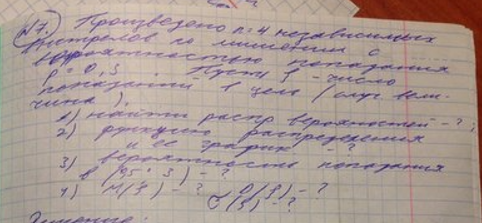 №7. Произведено n=4 независимых
выстрелов по мишени с
вероятностью попадания
p = 0,3. Пусть ξ - число
попаданий в цель (случ. вели-
чина).
1) найти распр вероятностей - ?
2) функцию распределения
и её график - ?
3) вероятность попадания
в (0,5; 3) - ?
4) M(ξ) - ? D(ξ) - ?
σ(ξ) - ?
Решение: